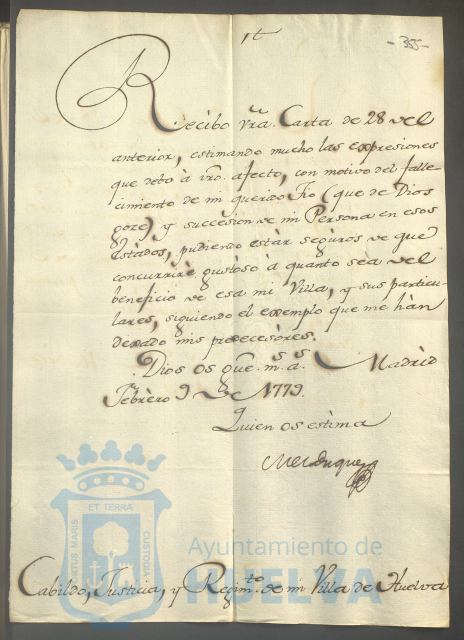 -355-
Recibo vr̃a. Carta de 28 del
anterior, estimando mucho las expresiones
que debo à vr̃o. afecto, con motivo del falle-
cimiento de mi querido Tio (que de Dios
goze) y succesion de mi Persona en esos
Estados, pudiendo estàr segùros de que
concurrirè gustoso à quanto sèa del
beneficio de esa mi Villa, y sus particu-
lares, siguiendo el exemplo que me hàn
dexado mis predecesòres.
Dios os gue. m.s a.s Madrid
Febrèro 9 de 1779.
Quien os estima
Cabildo, Justicia, y Regim.to de mi Villa de Huelva
ET TERRA
CUSTODIA
Ayuntamiento de
HUELVA